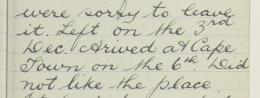 were sorry to leave
it. Left on the 3rd
Dec. Arived at Cape
Town on the 6th. Did
not like the place.